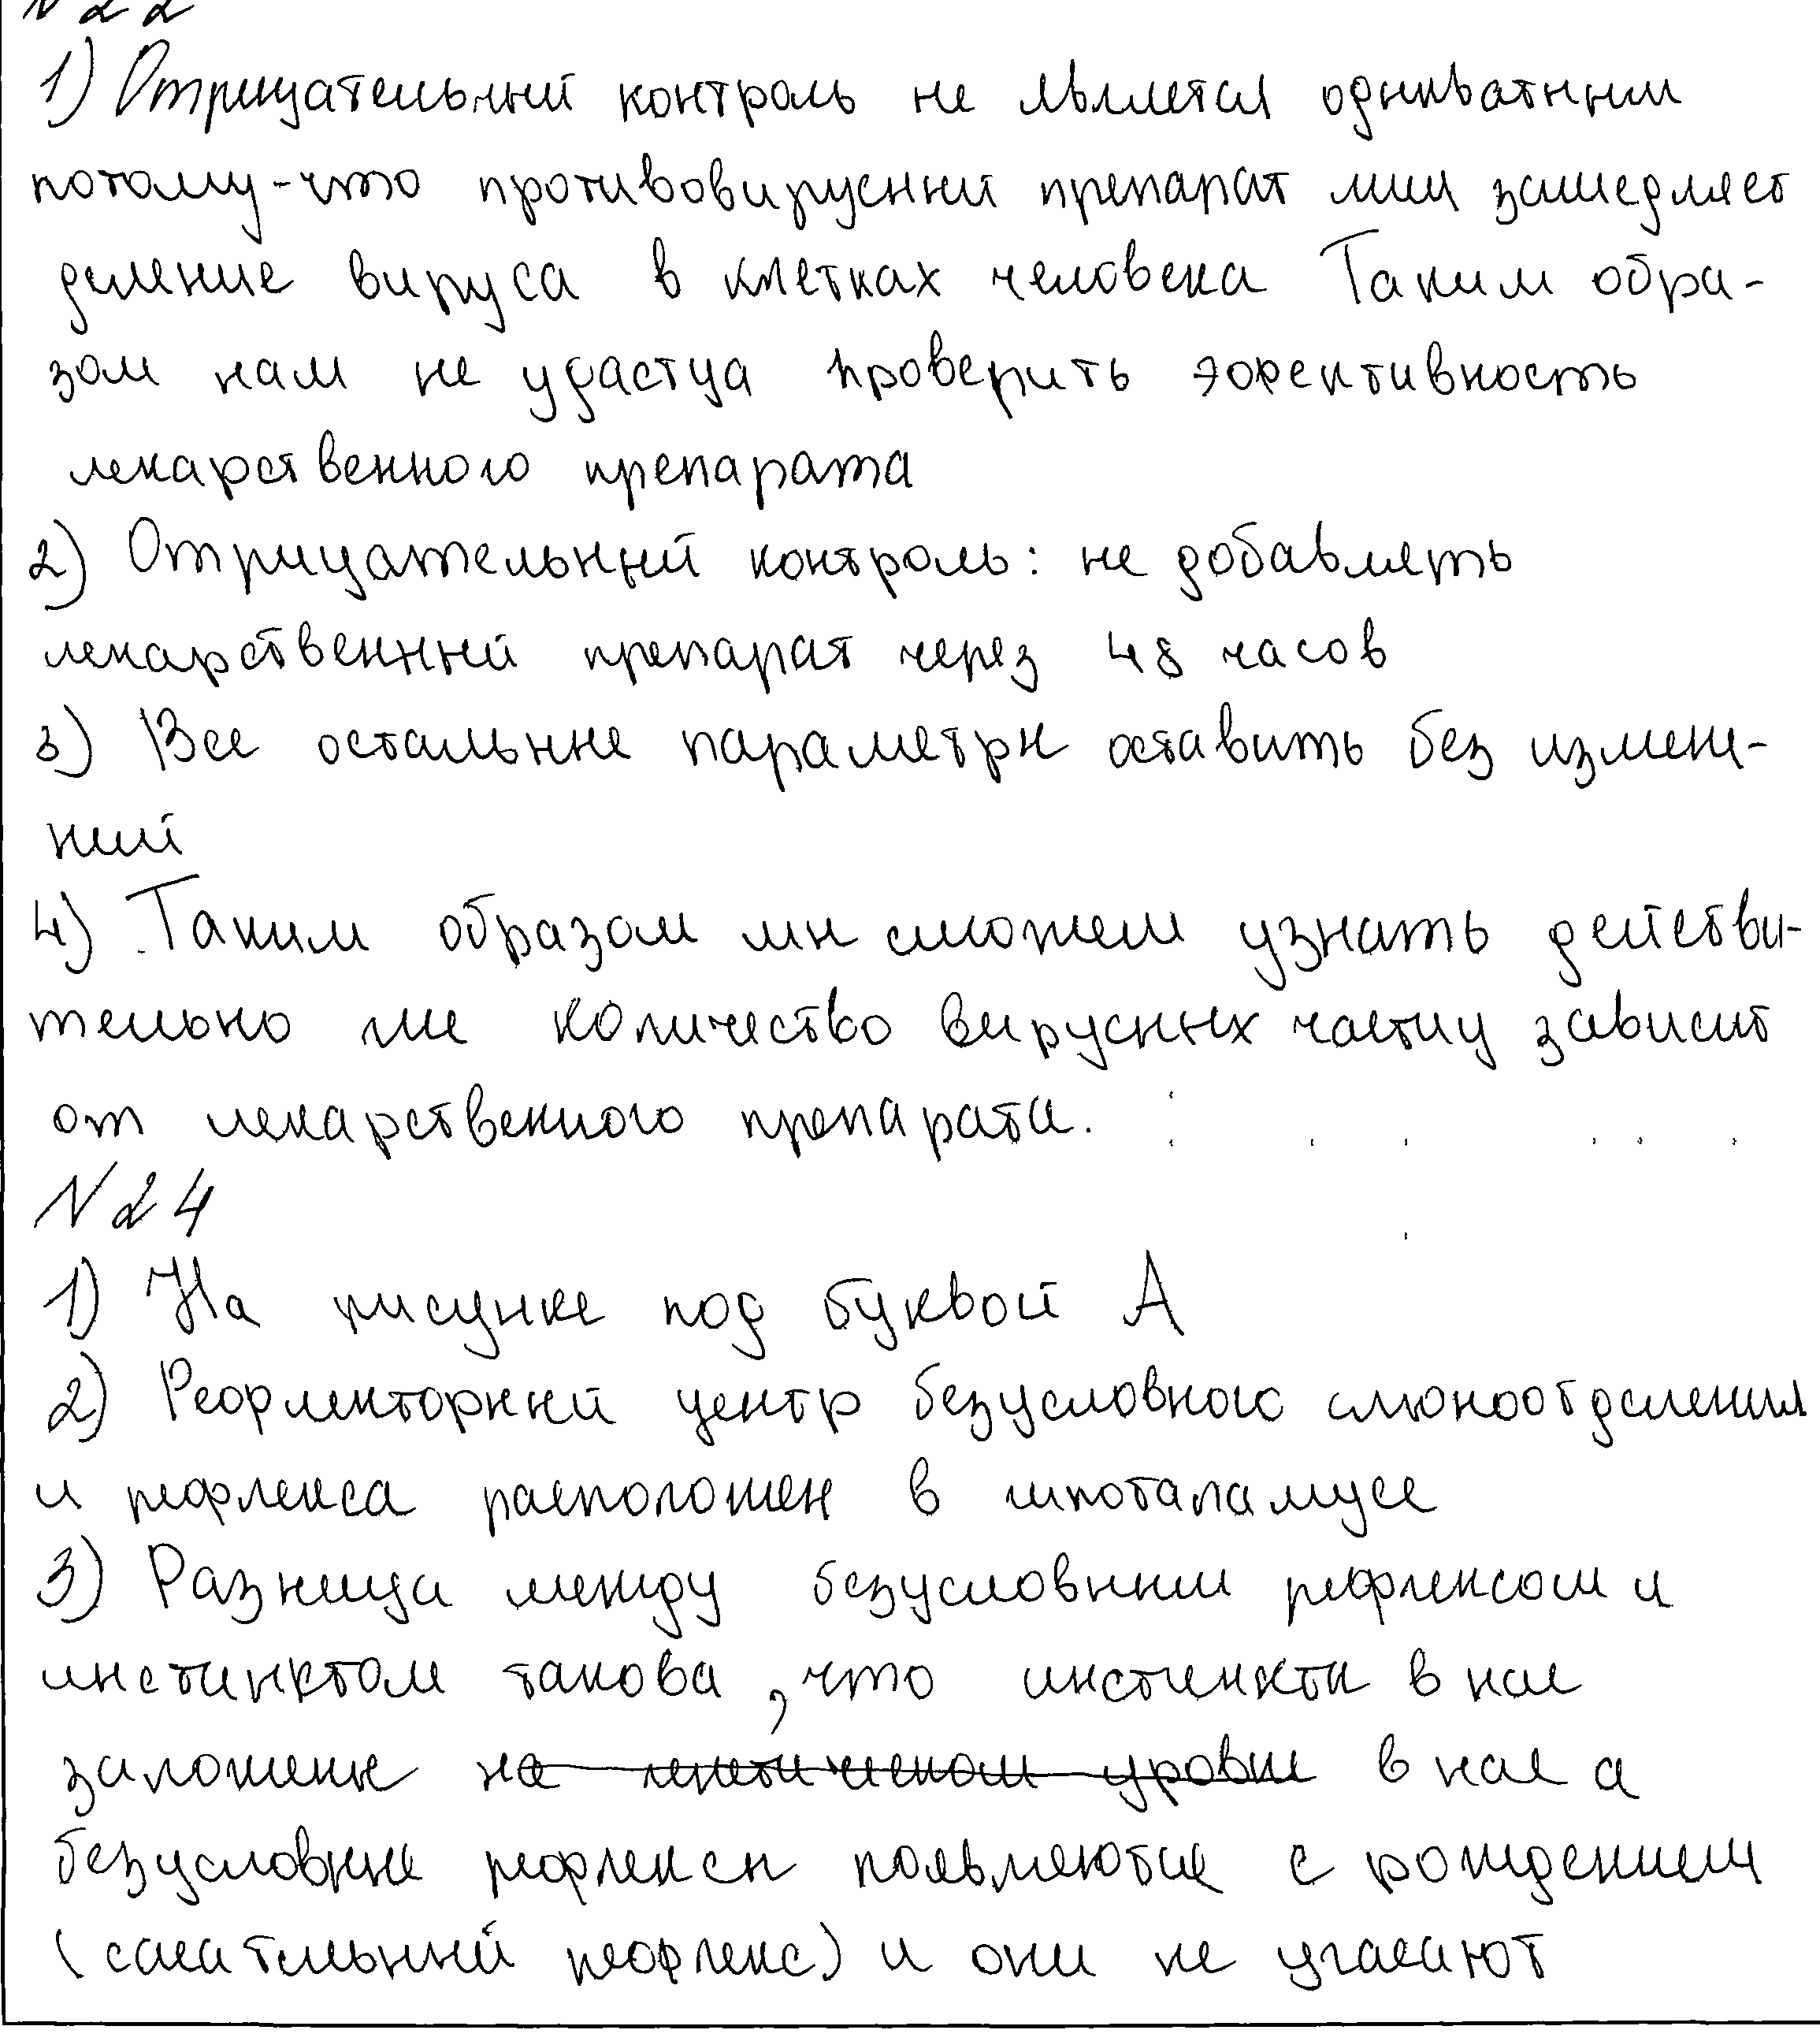 N 22
1) Отрицательный контроль не является одикватным
потому-что противовирусный препарат лиш замедляет
деление вируса в клетках человека Таким обра-
зом нам не удастца проверить эфективность
лекарственного препарата
2) Отрицательный контроль: не добавлять
лекарственный препарат через 48 часов
3) Все остальные параметры оставить без измене-
ний
4) Таким образом мы сможем узнать действи-
тельно ли количество вирусных частиц зависит
от лекарственного препарата.
N 24
1) На рисунке под буквой А
2) Рефлекторный центр безусловного слюноотделения
и рефлекса расположен в гипоталамусе
3) Разница между безусловным рефлексом и
инстинктом такова, что инстинкты в нас
заложены на генетическом уровне в нас а
безусловные рефлексы появляются с рождением
(сасательный рефлекс) и они не угасают